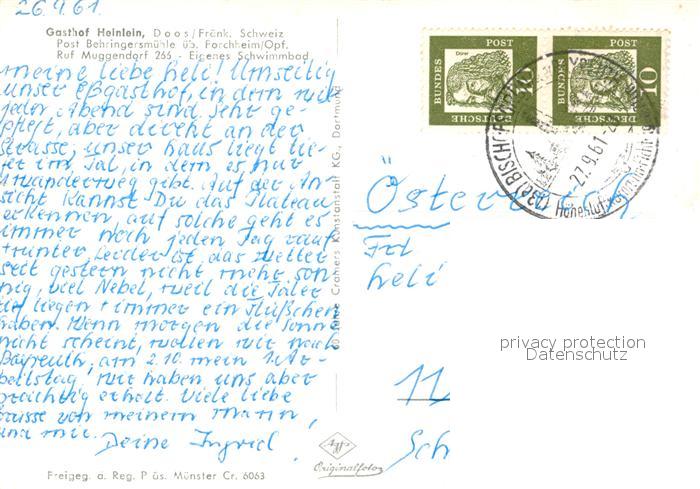 26.9.61.
Gasthof Heinlein, Doos/Fränk. Schweiz
Post Behringersmühle üb. Forchheim/Opf.
Ruf Muggendorf 266 - Eigenes Schwimmbad
meine liebe heli! Umseitig
unser Eßgasthof, in dem wir
jeden Abend sind. Sehr ge-
pflegt, aber direkt an der
Strasse, unser haus liegt tie-
fer im Tal, in dem es nur
1 wanderweg gibt. Auf der An-
sicht kannst Du das Plateau
erkennen, auf solche geht es
immer noch jeden Tag rauf
+ runter, Leider ist das wetter
seit gestern nicht mehr son-
nig, viel Nebel, weil die Täler
tief liegen + immer ein Flüßchen
haben. Wenn morgen die Sonne
nicht scheint, wollen wir nach
Bayreuth, am 2.10. mein 1. Ar-
beitstag. wir haben uns aber
prächtig erholt. Viele liebe
Grüsse von meinem Mann,
und mir.
Deine Ingrid
60 Jahre Cramers Kunstanstalt KG., Dortmund
DEUTSCHE BUNDESPOST
Dürer
10
DEUTSCHE BUNDESPOST
10
27.9.61
Österreich
Frl
heli
11
Sch
privacy protection
Datenschutz
Agfa
Originalfoto
Freigeg. d. Reg. Präs. Münster Cr. 6063